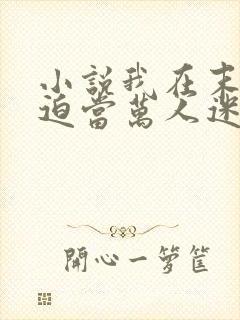 小説我在末
迫當萬人迷
開心一籮筐